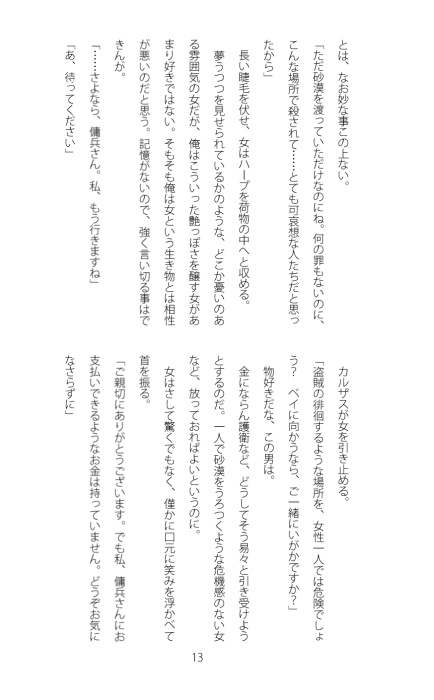 とは、なお妙な事この上ない。
「ただ砂漠を渡っていただけなのにね。何の罪もないのに、
こんな場所で殺されて……とても可哀想な人たちだと思っ
たから」
長い睫毛を伏せ、女はハープを荷物の中へと収める。
夢うつつを見せられているかのような、どこか憂いのあ
る雰囲気の女だが、俺はこういった艶っぽさを醸す女があ
まり好きではない。そもそも俺は女という生き物とは相性
が悪いのだと思う。記憶がないので、強く言い切る事はで
きんが。
「……さよなら、傭兵さん。私、もう行きますね」
「あ、待ってください」
カルザスが女を引き止める。
「盗賊の徘徊するような場所を、女性一人では危険でしょ
う？　ベイに向かうなら、ご一緒にいかがですか？」
物好きだな、この男は。
金にならん護衛など、どうしてそう易々と引き受けよう
とするのだ。一人で砂漠をうろつくような危機感のない女
など、放っておればよいというのに。
女はさして驚くでもなく、僅かに口元に笑みを浮かべて
首を振る。
「ご親切にありがとうございます。でも私、傭兵さんにお
支払いできるようなお金は持っていません。どうぞお気に
なさらずに」
13